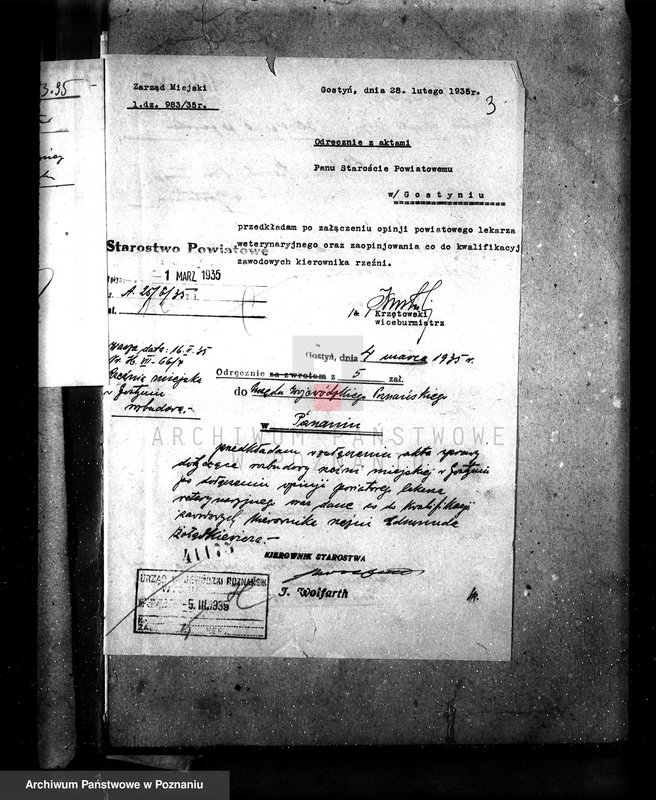 Zarząd Miejski
l.dz. 983/35r.
Gostyń, dnia 28. lutego 1935r.
3
Odręcznie z aktami
Panu Staroście Powiatowemu
w/ Gostyniu
przedkładam po załączeniu opinji powiatowego lekarza
weterynaryjnego oraz zaopinjowania co do kwalifikacyj
zawodowych kierownika rzeźni.
Starostwo Powiatowe
1 MARZ 1935
/ Krzętowski /
wiceburmistrz
Gostyń, dnia 4 marca 1935 r.
Odręcznie za zwrotem z 5 zał.
do Urzędu Wojewódzkiego Poznańskiego
w Poznaniu
miejska
w Gostyniu
rozbudowa.-
przedkładam w załączeniu akta sprawy
dotyczące rozbudowy rzeźni miejskiej w Gostyniu
po dołączeniu opinji powiatowego lekarza
weterynaryjnego oraz dane co do kwalifikacji
zawodowych kierownika rzeźni Edmunda
KIEROWNIK STAROSTWA
J. Wolfarth
URZĄD WOJEWÓDZKI POZNAŃSKI
5. III. 1935
ARCHIWUM PAŃSTWOWE
W POZNANIU
Archiwum Państwowe w Poznaniu
3.35